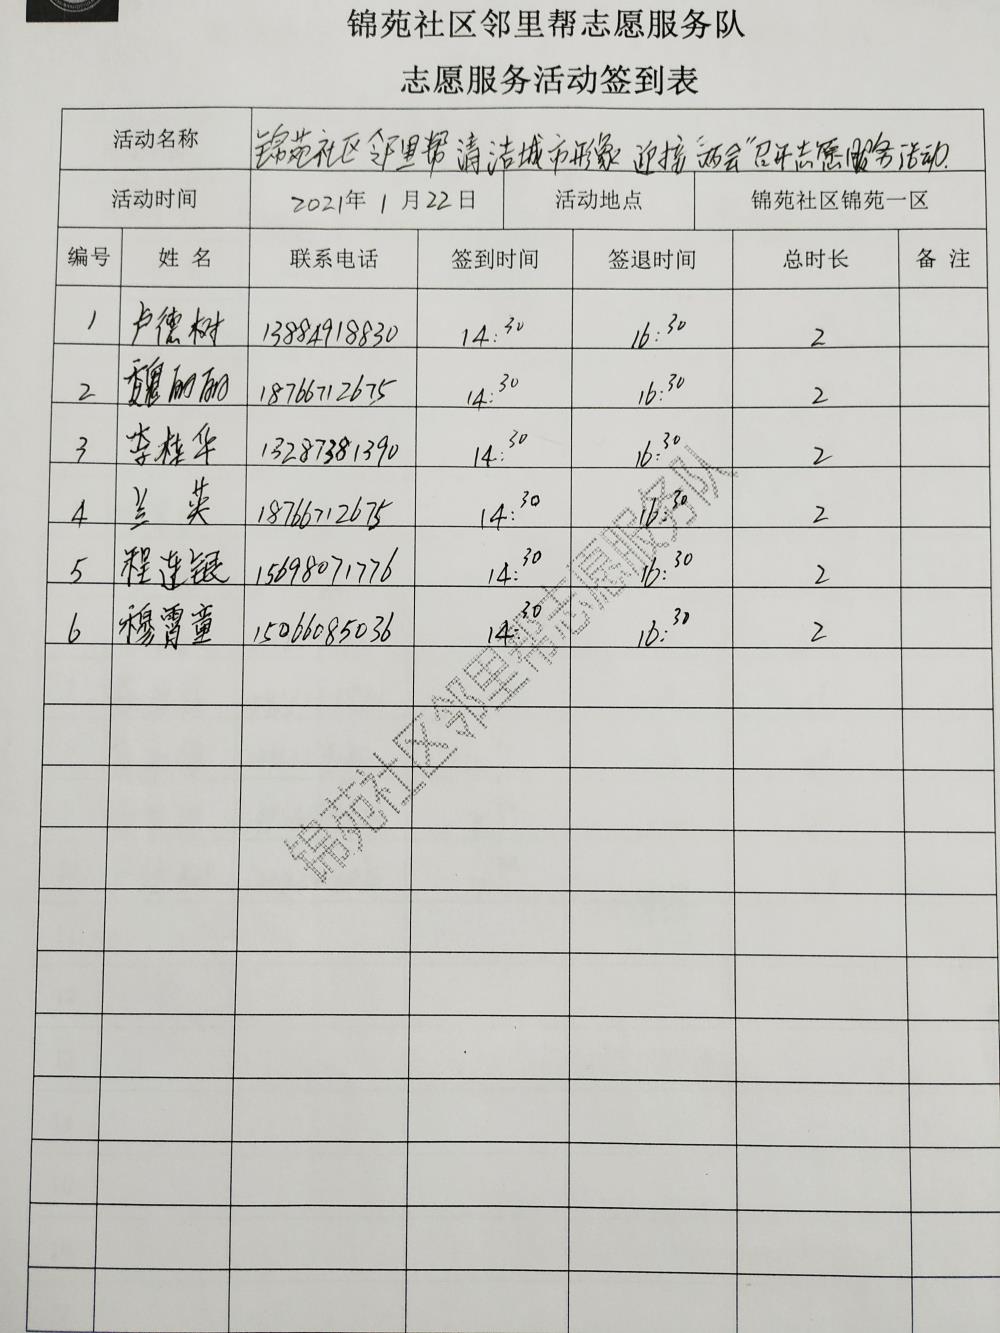 锦苑社区邻里帮志愿服务队
志愿服务活动签到表
活动名称 锦苑社区邻里帮清洁城市形象 迎接"两会"召开志愿服务活动.
活动时间 2021年1月22日 活动地点 锦苑社区锦苑一区
编号 姓名 联系电话 签到时间 签退时间 总时长 备注
1 卢德树 13884918830 14:30 16:30 2
2 魏丽丽 18766712675 14:30 16:30 2
3 李桂华 13287381390 14:30 16:30 2
4 兰英 18766712675 14:30 16:30 2
5 程连银 15698071776 14:30 16:30 2
6 穆霄童 15066085036 14:30 16:30 2
锦苑社区邻里帮志愿服务队